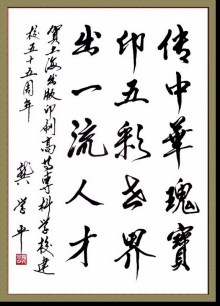 传中華瑰寳
印五彩世界
出一流人才
賀上海出版印刷高等專科学校建
校五十五周年
龔学平